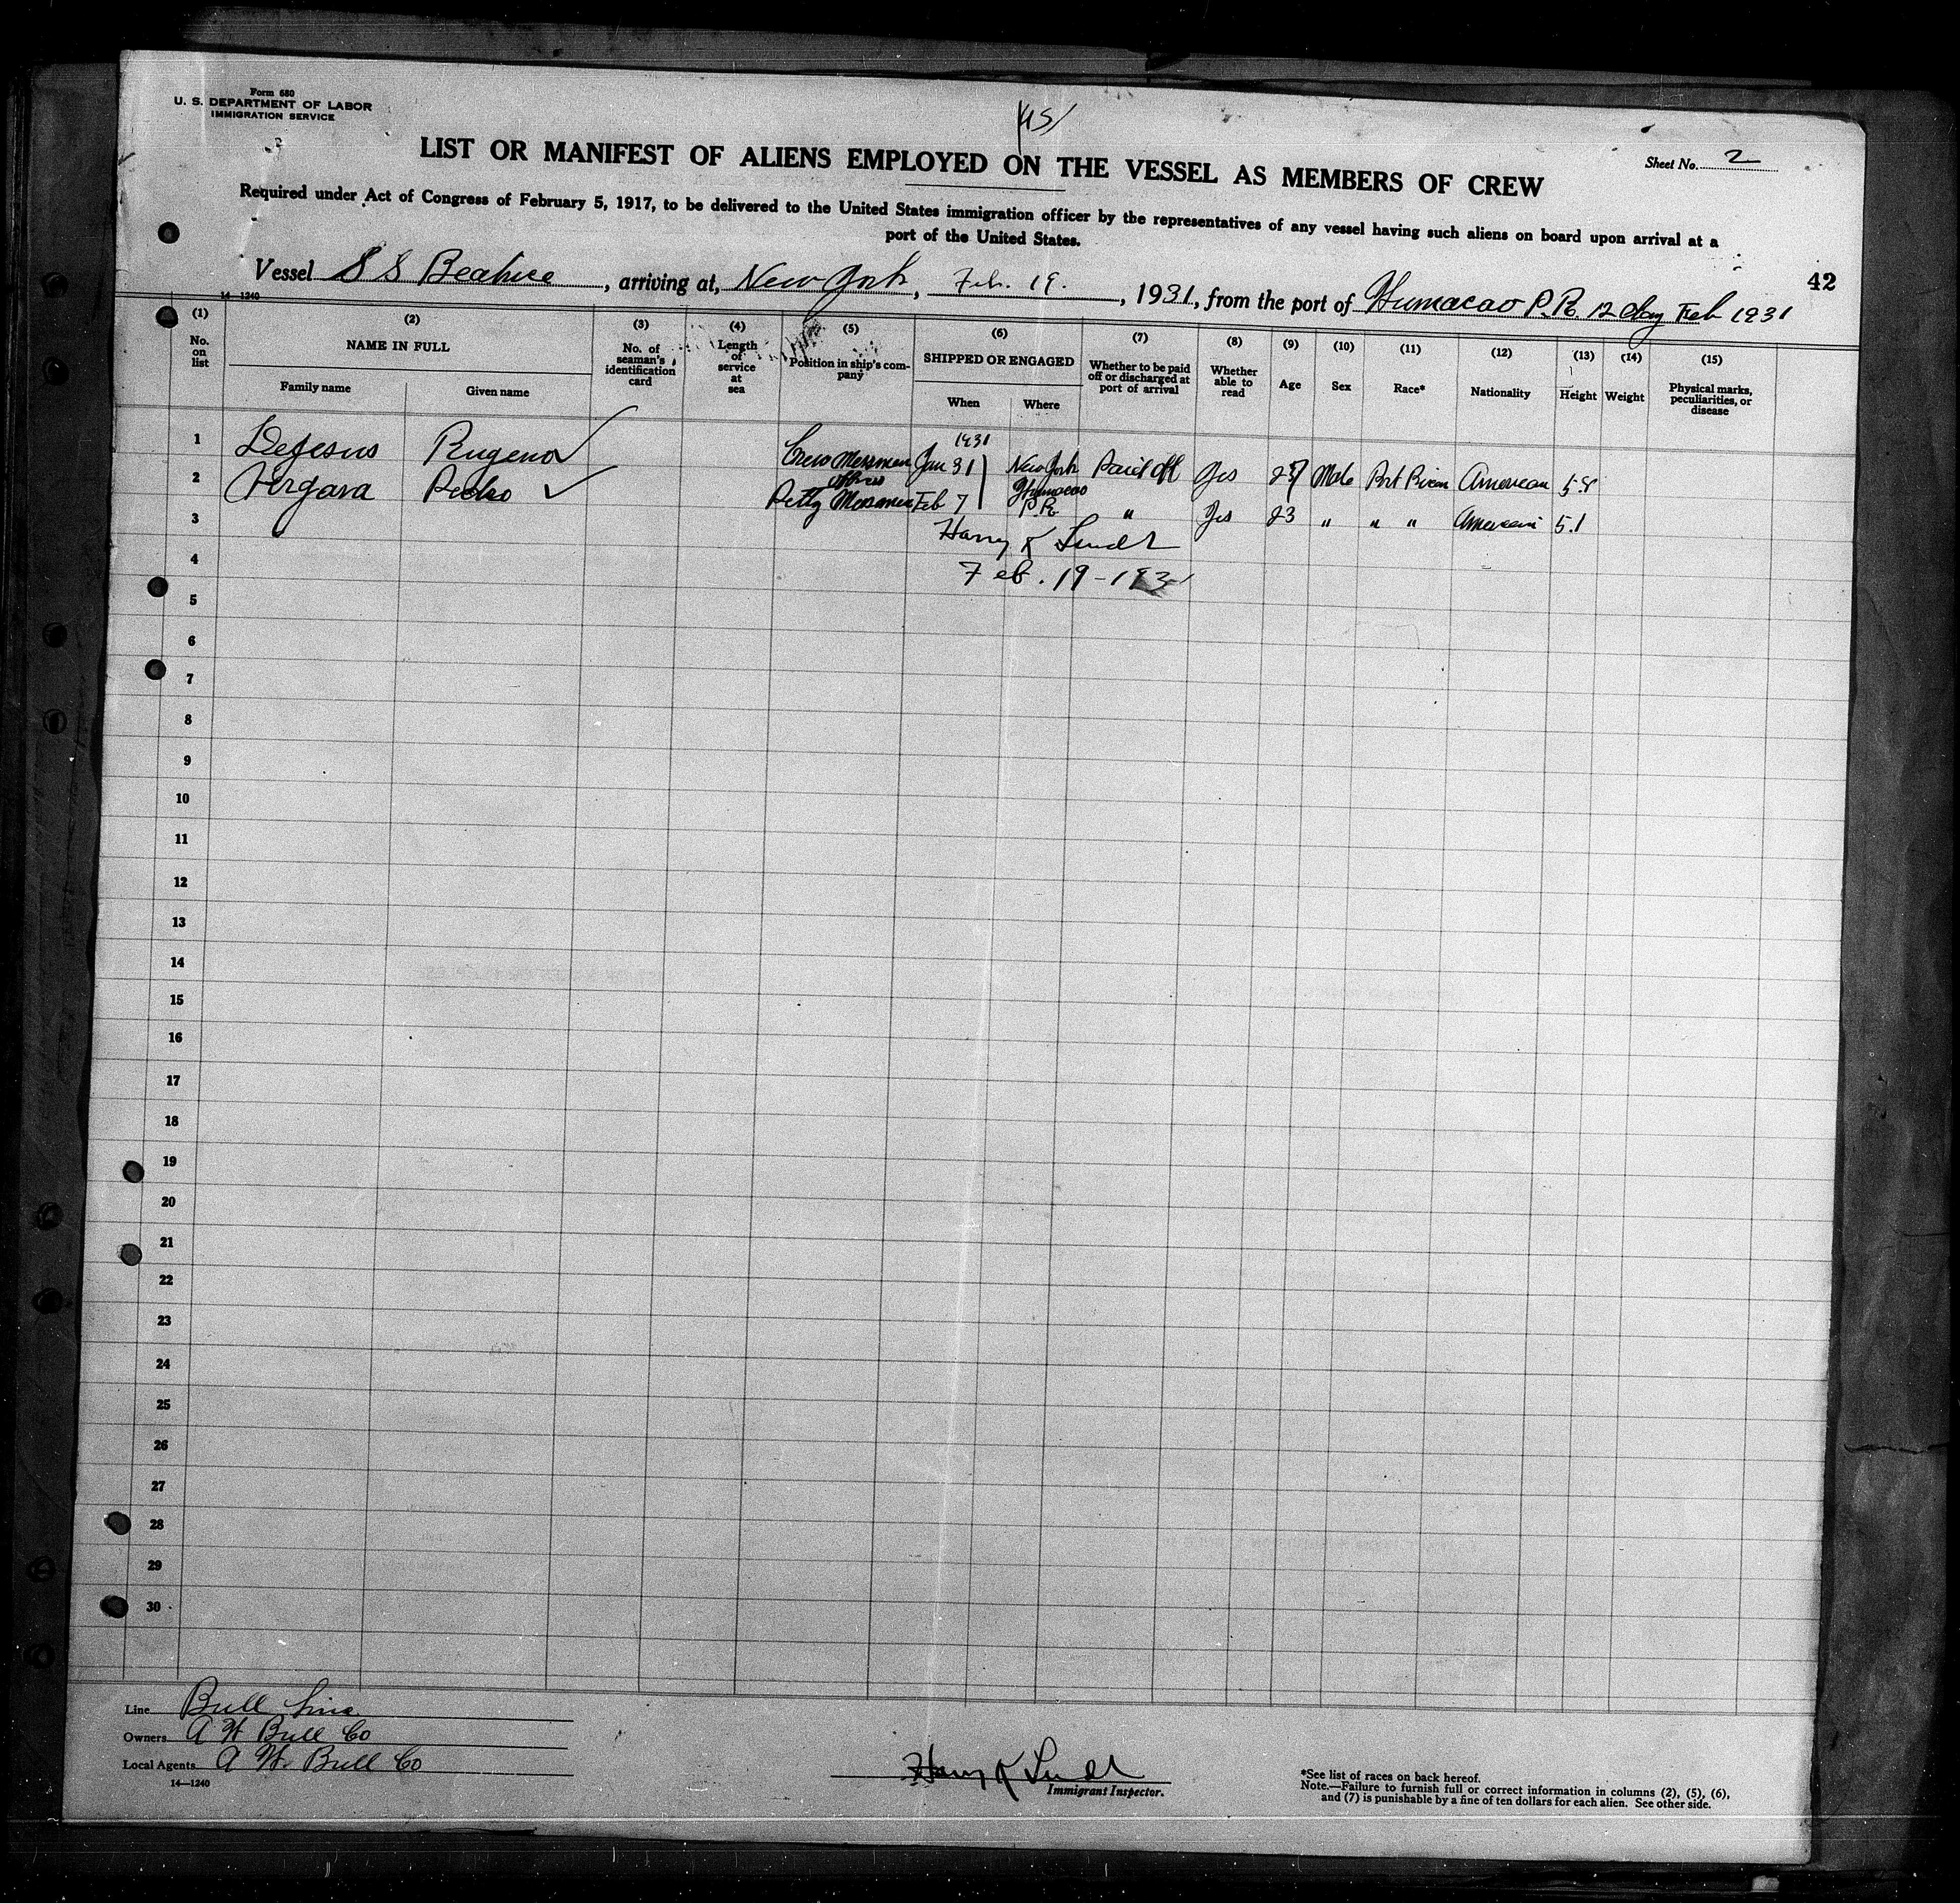 Form 680
U. S. DEPARTMENT OF LABOR
IMMIGRATION SERVICE
LIST OR MANIFEST OF ALIENS EMPLOYED ON THE VESSEL AS MEMBERS OF CREW
Sheet No. 2
Required under Act of Congress of February 5, 1917, to be delivered to the United States immigration officer by the representatives of any vessel having such aliens on board upon arrival at a
port of the United States.
42
Vessel S S Beatrice, arriving at, New York, Feb. 19., 1931, from the port of Humacao P.R. 12 day Feb 1931
14-1240
(1) (2) (3) (4) (5) (6) (7) (8) (9) (10) (11) (12) (13) (14) (15)
No. on list
NAME IN FULL
Family name
Given name
No. of seaman's identification card
Length of service at sea
Position in ship's company
SHIPPED OR ENGAGED
When
Where
Whether to be paid off or discharged at port of arrival
Whether able to read
Age
Sex
Race*
Nationality
Height
Weight
Physical marks, peculiarities, or disease
1931
1 DeJesus Crew Messman Jan 31 New York Paid off Yes Male Port Rican American 5.8
2 Vergara Pedro Petty officer Messman Feb 7 Humacao P.R. " Yes 23 " " " American 5.1
3 Harry K
4 Feb. 19-1931
5
6
7
8
9
10
11
12
13
14
15
16
17
18
19
20
21
22
23
24
25
26
27
28
29
30
Line Bull Line
Owners A H Bull Co
Local Agents A H. Bull Co
14—1240
Harry K
Immigrant Inspector.
*See list of races on back hereof.
Note.—Failure to furnish full or correct information in columns (2), (5), (6),
and (7) is punishable by a fine of ten dollars for each alien. See other side.